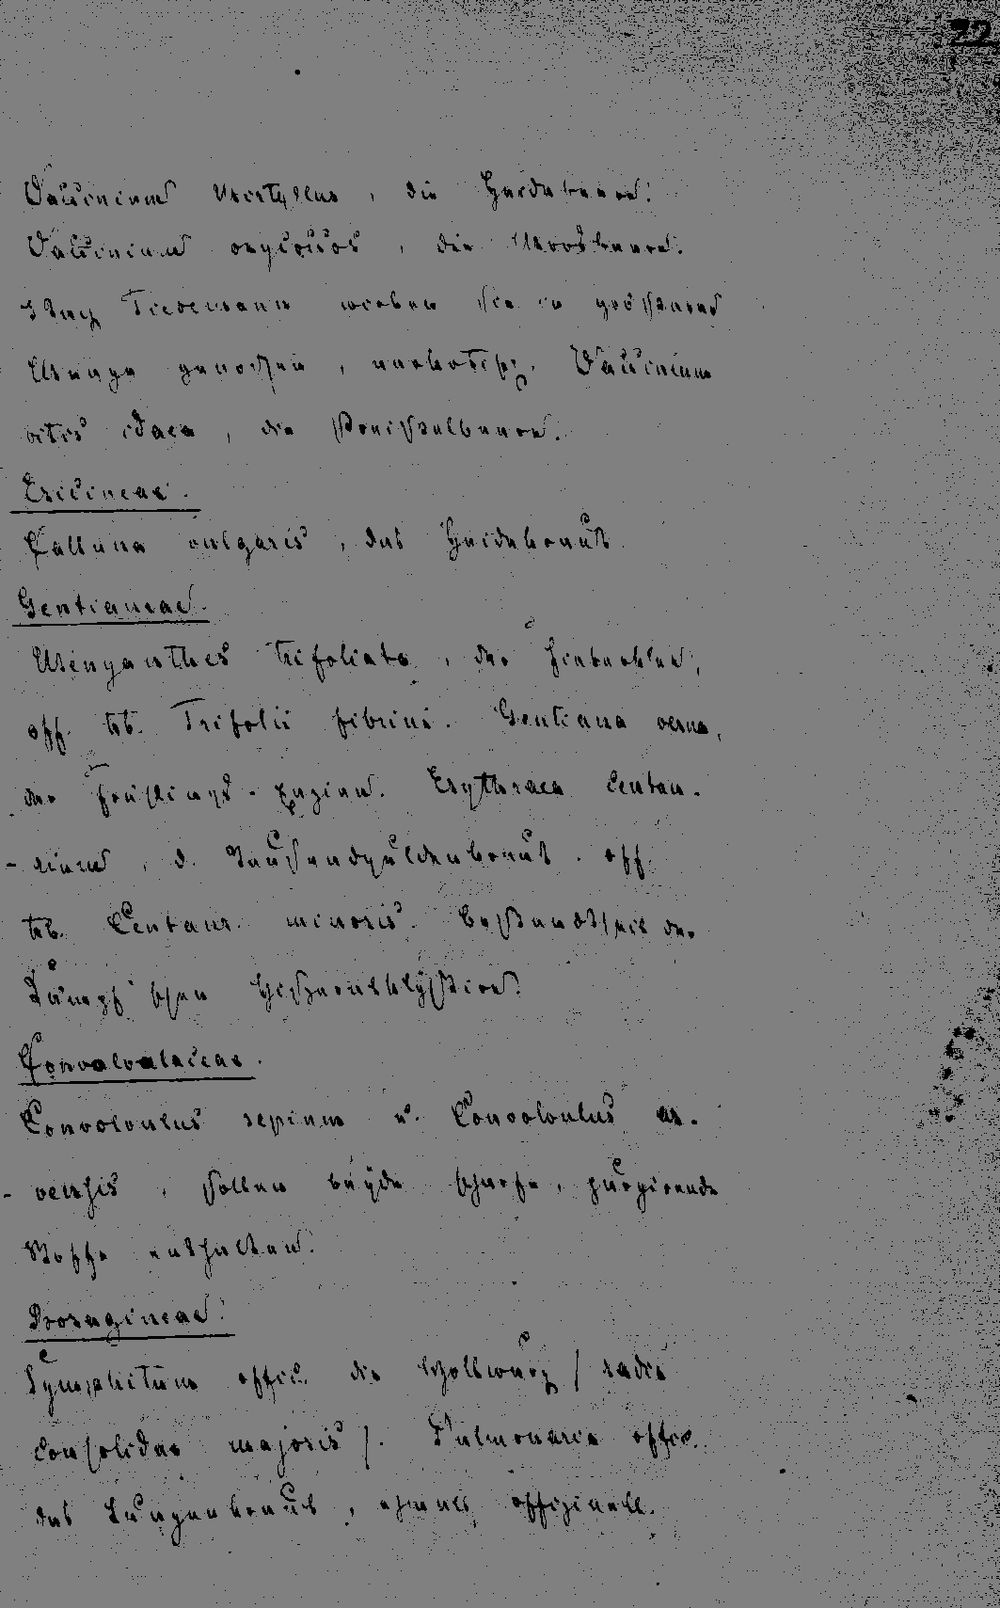 22
Vaccinium Myrtyllus, die Heidebeere.
Vaccinium oxycoccos, die Moosbeere.
Nach Tiedemann wirken sie in größerer
Menge genossen, narkotisch. Vaccinium
vitis idaea, die Preißelbeere.
Ericineae.
Calluna vulgaris, das Heidekraut
Gentianeae.
Menyanthes trifoliata, der Fieberklee,
off. hb. Trifolii fibrini. Gentiana verna,
der Frühlings-Enzian. Erythraea Centau-
-rium, d. Tausendguldenkraut. off.
hb. Centaur. minoris. Bestandtheil der
Kämpf'schen
Convolvulaceae.
Convolvulus sepium u. Convolvulus ar-
-vensis, sollen beyde scharfe, purgirende
Stoffe enthalten.
Boragineae.
Symphitum offic. die Wallwurz / radix
Consolidae majoris /. Pulmonaria offic.
das Lungenkraut, ehmals offizinell.